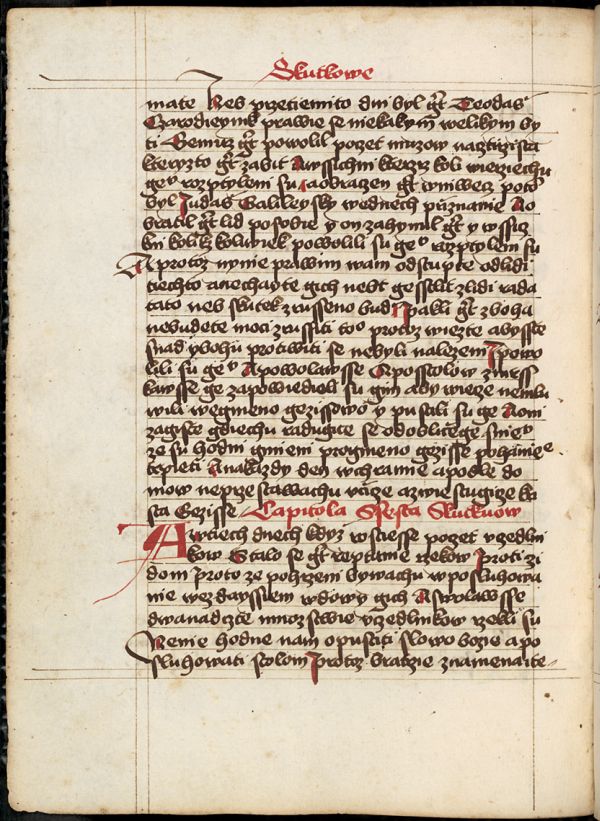 Skutkowe
mate Neb przetiemito dni byl gt̄ Teodas
Czarodieynik prawie se niekakym̄ welikym by
ti Gemuz gt̄ powolil pozet muzow nacztirzista
kteryzto gt̄ zabit A wssichni kterziz koli wierziechu
ge° rozptyleni su a obraczen gt̄ wniwecz potō
byl Judas Galileysky wednech prziznanie Ao
bratil gt̄ lid posobie y on zahynul gt̄ y wssicz
kni kolikz koliwiek powolili su ge° rozptyleni su
A protoz nynie prawim wam odstupte odlidi
tiechto anechayte gich nebt gestlit zlidi rada
tato neb skutek zrusseno bud Paklit gt̄ zboha
nebudete moci zrussiti to° protoz wiezte abysste
snad ybohu protiwiti se nebyli nalezeni Ipowo
lili su ge° Apowolawsse Aposstolow zmrss
kawsse ge zapowiedieli su gim aby wiecze nemlu
wili wegmeno gezissowo y pustili su ge Aoni
zagiste gdiechu radugicze se odobliczege snie°
ze su hodni gmieni progmeno gezisse pohanie͞e
trpieti Anakazdy den wchramie apodle do
mow neprzestawachu vcziecze azwiestugicze kri
sta Gezisse Capitola Ssesta Skutkuow
A wtiech dnech kdyz wsticsse pozet vczedlni
kow Stalo se gt̄ reptanie rzekow proti zi
dom proto ze pohrzeni bywachu wposluhowa
nie wezdayssiem wdowy gich A swolawsse
dwanadczte mnozstwie vczedlnikow rzekli su
Nenie hodne nam opustiti slowo bozie apo
sluhowati stolom Protoz bratrzie znamenaite